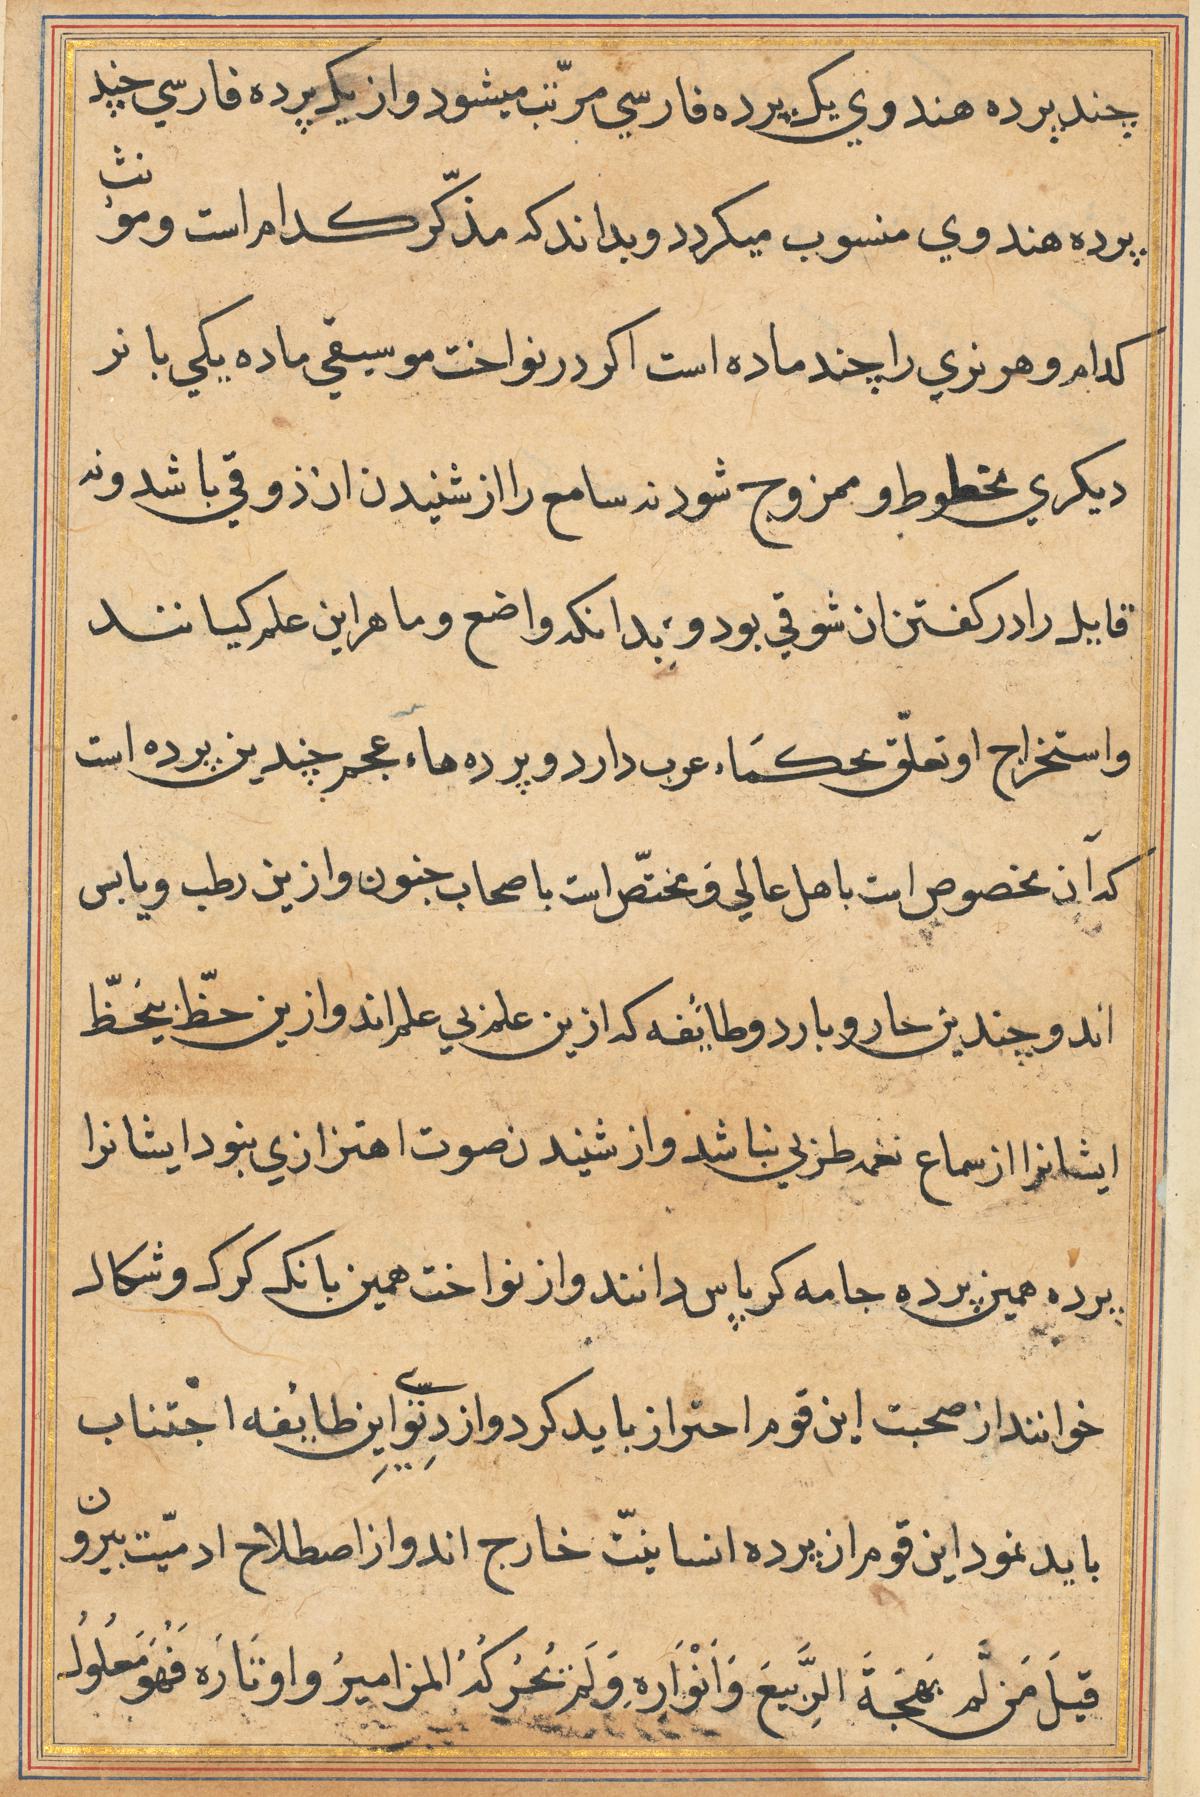 چند پرده هندوي یک پرده فارسي مرتّب میشود و از یک پرده فارسي چند
پرده هندوي منسوب میکردد و بداند که مذکّر کدام است و مؤنث
کدام و هر نري را چند ماده است اکر در نواخت موسیقي ماده یکي با نر
دیکري مخطوط و ممزوج شود نه سامع را از شنیدن ان ذوقي باشد و نه
قایل را در کفتن ان شوقي بود و بدانکه واضع و ماهر این علم کیانند
و استخراج او تعلّق بحکمَاء عرب دارد و پرده هاء عجم چندین پرده است
که آن مخصوص است باهل عالي و مختصّ است باصحاب جنون و ازین رطب و یابس
اند و چندین حار و بارد و طائفه که ازین علم بي علم اند و ازین حظّ بیحظّ
ایشانرا از سماع نغمه طربي نباشد و از شنیدن صوت اهتزازي نبود ایشانرا
پرده همین پرده جامه کرپاس دانند و از نواخت همین بانک کرک و شکال
خوانند از صحبت این قوم احتراز باید کرد و از دوستي این طائفه اجتناب
باید نمود این قوم از پرده انسانیّت خارج اند و از اصطلاح ادمیّت بیرون
قیلَ مَن لَّم بَهجَةَ الرَّبیعَ وَاَنْوَارِهِ وَلَم تُحرکُهُ المزامیرُ واوتَارَه فَهُوَ مَعلُولُ